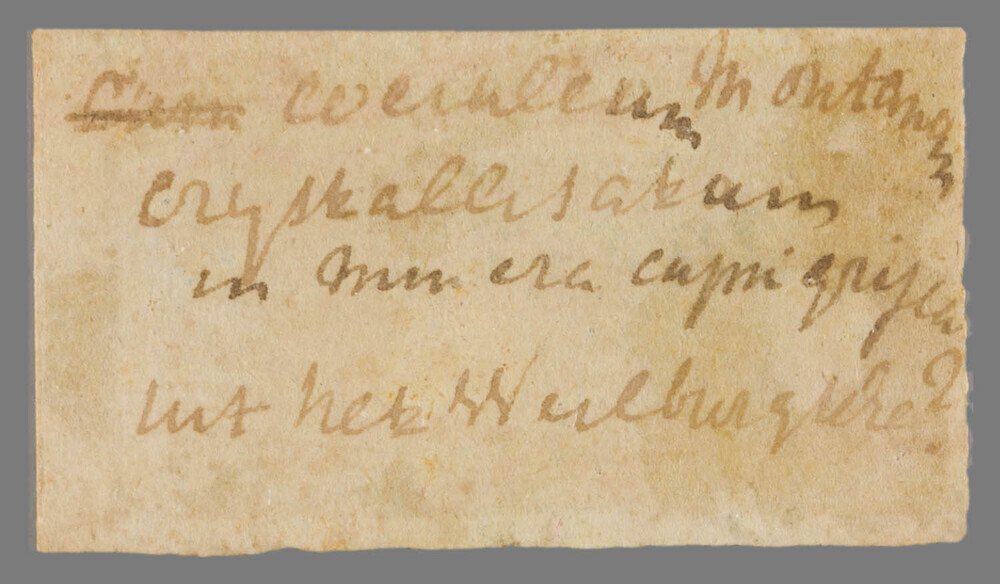 coeruleum Montanum
crystallisatum
in Minera cupri grisea
uit het Weilburgsche?